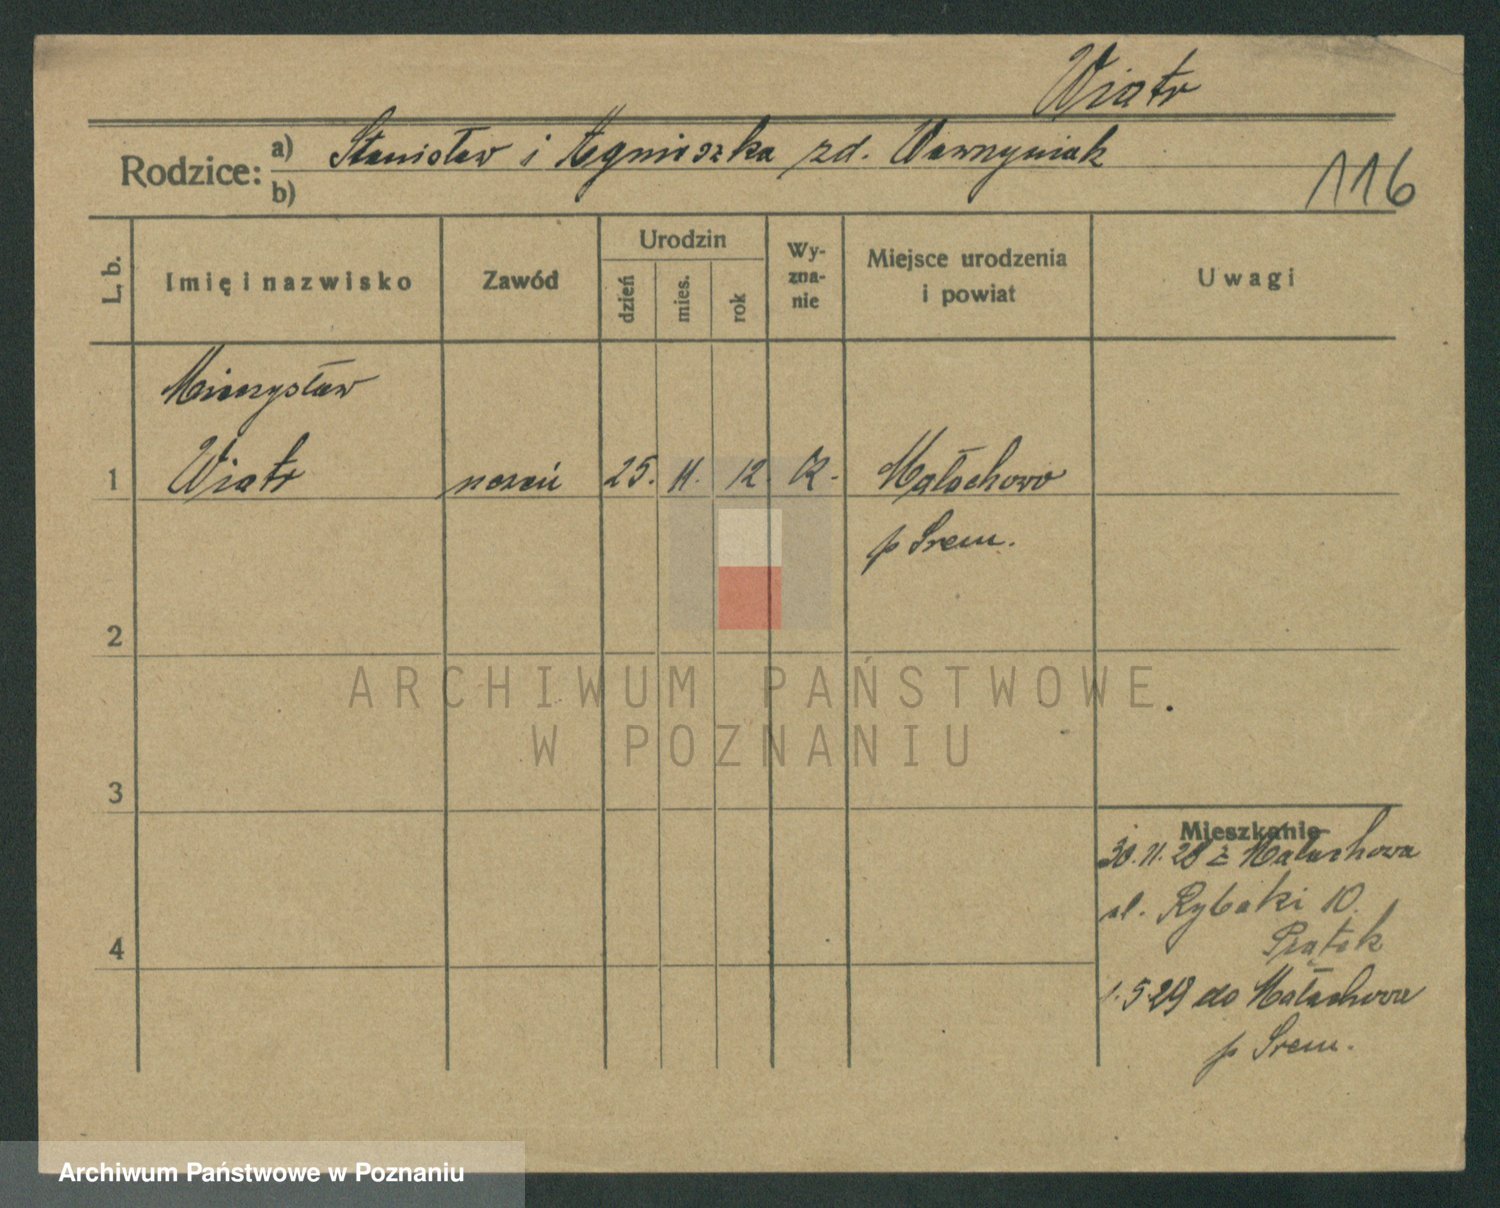 Wiatr
Rodzice: a) Stanisław i Agnieszka zd. Wawrzyniak
b)
116
L. b.
Imię i nazwisko
Zawód
Urodzin
dzień
mies.
rok
Wy-
zna-
nie
Miejsce urodzenia
i powiat
Uwagi
Mieczysław
1 Wiatr uczeń 25. 11. 12. K. Małachowo
p Śrem.
2
3
4
Mieszkanie
30.11.28 z Małachowa
ul. Rybaki 10.
Piątek
1.5.29 do Małachowa
p Śrem.
ARCHIWUM PAŃSTWOWE
W POZNANIU
Archiwum Państwowe w Poznaniu